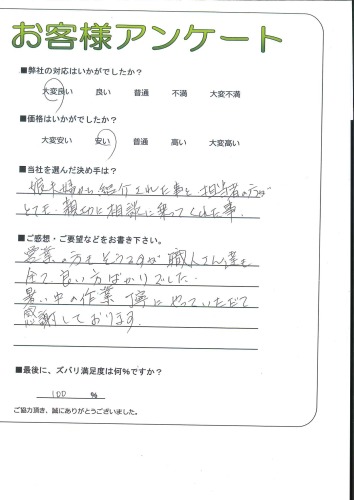 お客様アンケート
■弊社の対応はいかがでしたか?
大変良い 良い 普通 不満 大変不満
■価格はいかがでしたか?
大変安い 安い 普通 高い 大変高い
■当社を選んだ決め手は?
娘夫婦から紹介された事と、担当者の方が
とても親切に相談に乗ってくれた事。
■ご感想・ご要望などをお書き下さい。
営業の方もそうですが職人さん達も
全て良い方ばかりでした。
暑い中の作業丁寧にやっていただて
感謝しております。
■最後に、ズバリ満足度は何%ですか?
100 %
ご協力頂き、誠にありがとうございました。